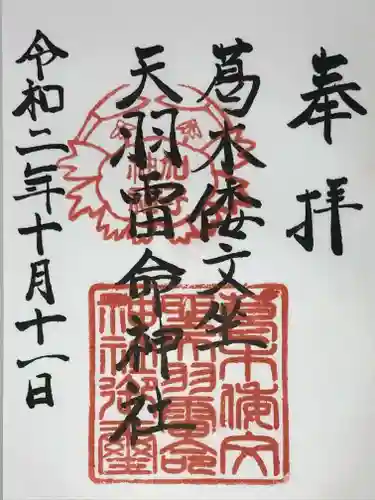 奉拝
葛木倭文坐
天羽雷命神社
令和二年十月十一日
葛木倭文
坐天羽雷命
神社御璽